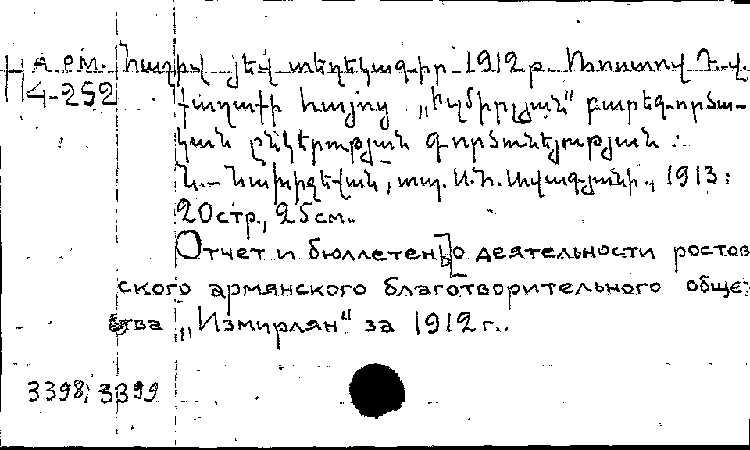 Н арм. Հաշիվ յեվ տեղեկագիր 1912 թ. Ռոստով Դ.վ.
4-252 քաղաքի հայոց „Իզմիրլյան“ բարեգործա-
կան ընկերության գործունեյության :
Ն.- Նախիջեվան, տպ. Ս.Հ. Ավագյանի., 1913:
20стр., 25см.
Отчет и бюллетень о деятельности ростов
ского армянского благотворительного обще-
ства „Измирлян“ за 1912 г..
3398; 3399